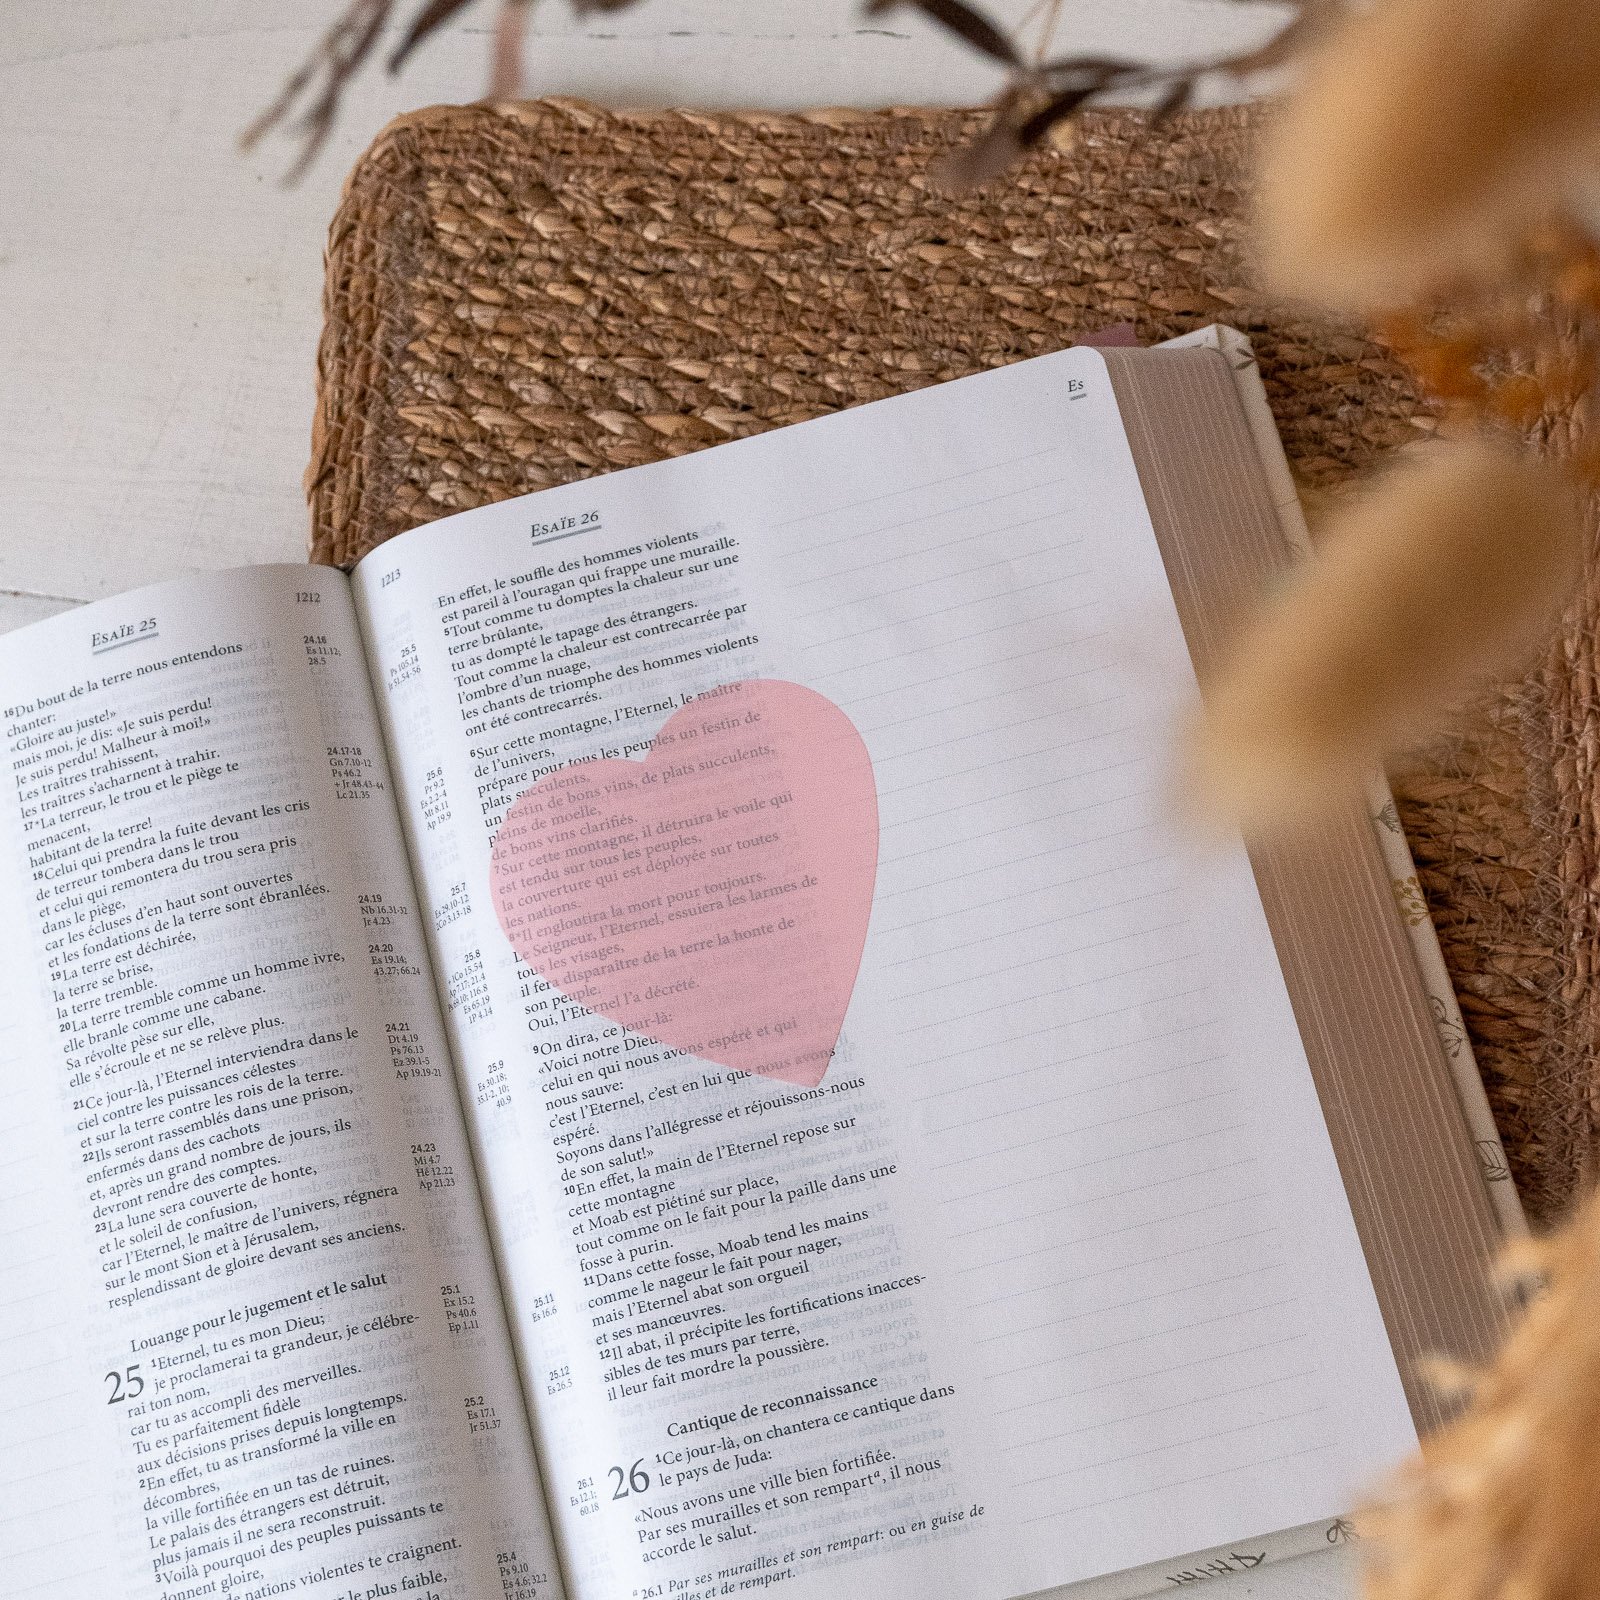 ESAÏE 25
1212
16Du bout de la terre nous entendons
chanter:
«Gloire au juste!»
mais moi, je dis: «Je suis perdu!
Je suis perdu! Malheur à moi!»
Les traîtres trahissent,
les traîtres s'acharnent à trahir.
17*La terreur, le trou et le piège te
menacent,
habitant de la terre!
18Celui qui prendra la fuite devant les cris
de terreur tombera dans le trou
et celui qui remontera du trou sera pris
dans le piège,
car les écluses d'en haut sont ouvertes
et les fondations de la terre sont ébranlées.
19La terre est déchirée,
la terre se brise,
la terre tremble.
20La terre tremble comme un homme ivre,
elle branle comme une cabane.
Sa révolte pèse sur elle,
elle s'écroule et ne se relève plus.
21Ce jour-là, l'Eternel interviendra dans le
ciel contre les puissances célestes
et sur la terre contre les rois de la terre.
22Ils seront rassemblés dans une prison,
enfermés dans des cachots
et, après un grand nombre de jours, ils
devront rendre des comptes.
23La lune sera couverte de honte,
et le soleil de confusion,
car l'Eternel, le maître de l'univers, régnera
sur le mont Sion et à Jérusalem,
resplendissant de gloire devant ses anciens.
Louange pour le jugement et le salut
25 1Eternel, tu es mon Dieu;
je proclamerai ta grandeur, je célébre-
rai ton nom,
car tu as accompli des merveilles.
Tu es parfaitement fidèle
aux décisions prises depuis longtemps.
2En effet, tu as transformé la ville en
décombres,
la ville fortifiée en un tas de ruines.
Le palais des étrangers est détruit,
plus jamais il ne sera reconstruit.
3Voilà pourquoi des peuples puissants te
donnent gloire,
de nations violentes te craignent.
le plus faible,
24.16
Es 11.12;
28.5
24.17-18
Gn 7.10-12
Ps 46.2
+ Jr 48.43-44
Lc 21.35
24.19
Nb 16.31-32
Jr 4.23
24.20
Es 19.14;
43.27; 66.24
24.21
Dt 4.19
Ps 76.13
Ez 39.1-5
Ap 19.19-21
24.23
Mi 4.7
Hé 12.22
Ap 21.23
25.1
Ex 15.2
Ps 40.6
Ep 1.11
25.2
Es 17.1
Jr 51.37
25.4
Ps 9.10
Es 4.6; 32.2
Jr 16.19
1213
ESAÏE 26
Es
25.5
Ps 105.14
Jr 51.54-56
25.6
Pr 9.2
Es 2.2-4
Mt 8.11
Ap 19.9
25.7
Es 29.10-12
2Co 3.13-18
25.8
+ 1Co 15.54
Es 65.19
1P 4.14
25.9
Es 30.18;
35.1-2, 10;
40.9
25.11
Es 16.6
25.12
Es 26.5
26.1
Es 12.1;
60.18
En effet, le souffle des hommes violents
est pareil à l'ouragan qui frappe une muraille.
5Tout comme tu domptes la chaleur sur une
terre brûlante,
tu as dompté le tapage des étrangers.
Tout comme la chaleur est contrecarrée par
l'ombre d'un nuage,
les chants de triomphe des hommes violents
ont été contrecarrés.
6Sur cette montagne, l'Eternel, le maître
de l'univers,
prépare pour tous les peuples un festin de
plats succulents,
un festin de bons vins, de plats succulents,
pleins de moelle,
de bons vins clarifiés.
7Sur cette montagne, il détruira le voile qui
est tendu sur tous les peuples,
la couverture qui est déployée sur toutes
les nations.
8*Il engloutira la mort pour toujours.
Le Seigneur, l'Eternel, essuiera les larmes de
tous les visages,
il fera disparaître de la terre la honte de
son peuple.
Oui, l'Eternel l'a décrété.
9On dira, ce jour-là:
«Voici notre Dieu,
celui en qui nous avons espéré et qui
nous sauve:
c'est l'Eternel, c'est en lui que nous avons
espéré.
Soyons dans l'allégresse et réjouissons-nous
de son salut!»
10En effet, la main de l'Eternel repose sur
cette montagne
et Moab est piétiné sur place,
tout comme on le fait pour la paille dans une
fosse à purin.
11Dans cette fosse, Moab tend les mains
comme le nageur le fait pour nager,
mais l'Eternel abat son orgueil
et ses manœuvres.
12Il abat, il précipite les fortifications inacces-
sibles de tes murs par terre,
il leur fait mordre la poussière.
Cantique de reconnaissance
26 1Ce jour-là, on chantera ce cantique dans
le pays de Juda:
«Nous avons une ville bien fortifiée.
Par ses murailles et son rempartª, il nous
accorde le salut.
ª 26.1 Par ses murailles et son rempart: ou en guise de
illes et de rempart.